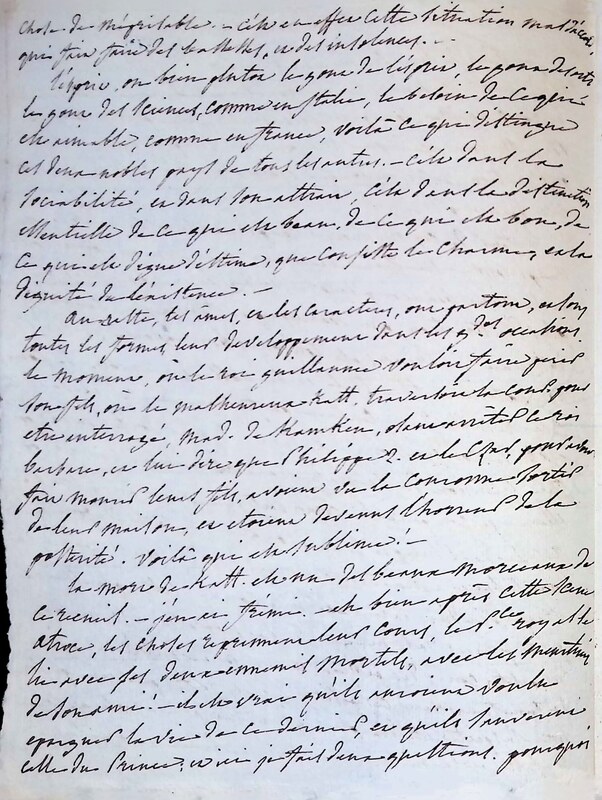 chose de méprisable. – c'est en effet cette situation
qui fait faire des bassesses, et des insolences. –
l'esprit, ou bien plutôt le goût de l'esprit, le goût des arts
le goût des sciences, comme en Italie, le besoin de ce qui
est aimable, comme en france, voilà ce qui distingue
ces deux nobles pays de tous les autres. – c'est dans la
sociabilité, et dans son attrait, c'est dans la distinction
essentielle de ce qui est beau, de ce qui est bon, de
ce qui est digne d'estime, que consiste le charme, et la
dignité de l'existence. –
au reste, les ames, et les caracteres, ont partout, et sous
toutes les formes, leur developpement dans les gdes occasions.
le moment, où le roi guillaume vouloit faire perir
son fils, où le malheureux Katt. traversoit la cour pour
etre interrogé, mad. de Kamken, osant arrêter ce roi
barbare, et lui dire que Philippe 2. et le Czar, pour avoir
fait mourir leurs fils, avoient vu la couronne sortir
de leur maison, et etoient devenus l'horreur de la
posterité. voilà qui est sublime! –
la mort de Katt. est un des beaux morceaux de
ce recueil. – j'en ai frémi. – eh bien après cette scene
atroce, les choses reprennent leur cours, le Pce royal se
lie avec ses deux ennemis mortels, avec les meurtriers
de son ami! – il est vrai qu'ils auroient voulu
epargner la vie de ce dernier, et qu'ils sauverent
celle du Prince. et ici je fais deux questions. pourquoi